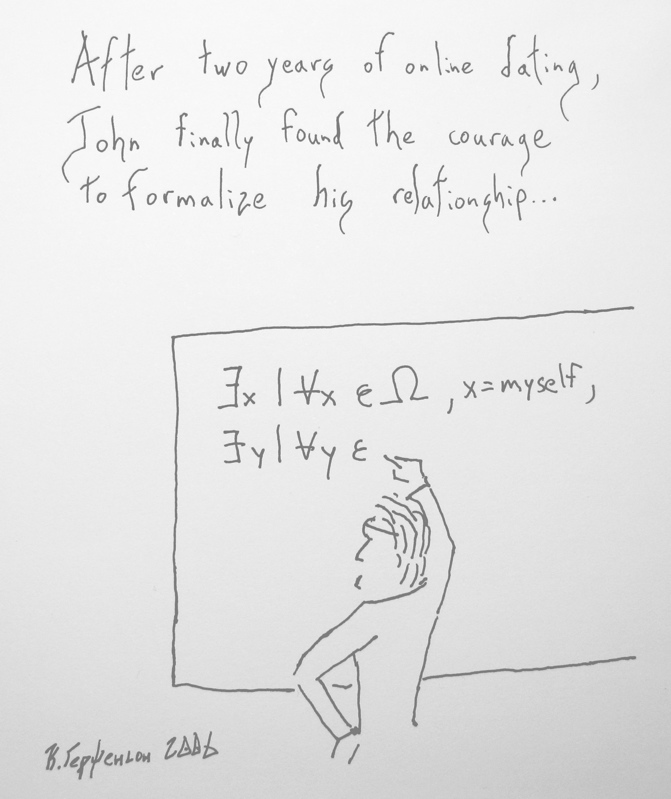 After two years of online dating,
John finally found the courage
to formalize his relationship...
∃x | ∀x ∈ Ω, x = myself,
∃y | ∀y ∈
2006